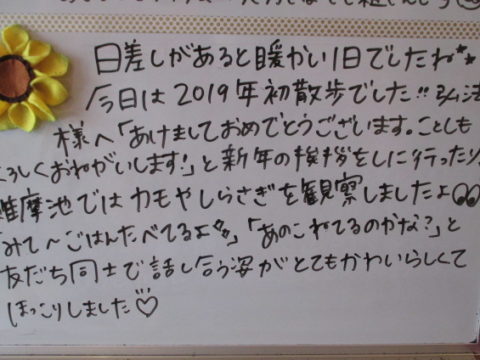 日差しがあると暖かい1日でしたね
今日は2019年初散歩でした!! 弘法
様へ「あけましておめでとうございます。ことしも
ろしくおねがいします!」と新年の挨拶をしに行ったり、
維摩池ではカモやしらさぎを観察しましたよ
「みて〜ごはんたべてるよ」、「あのこねてるのかな?」と
友だち同士で話し合う姿がとてもかわいらしくて
ほっこりしました♡